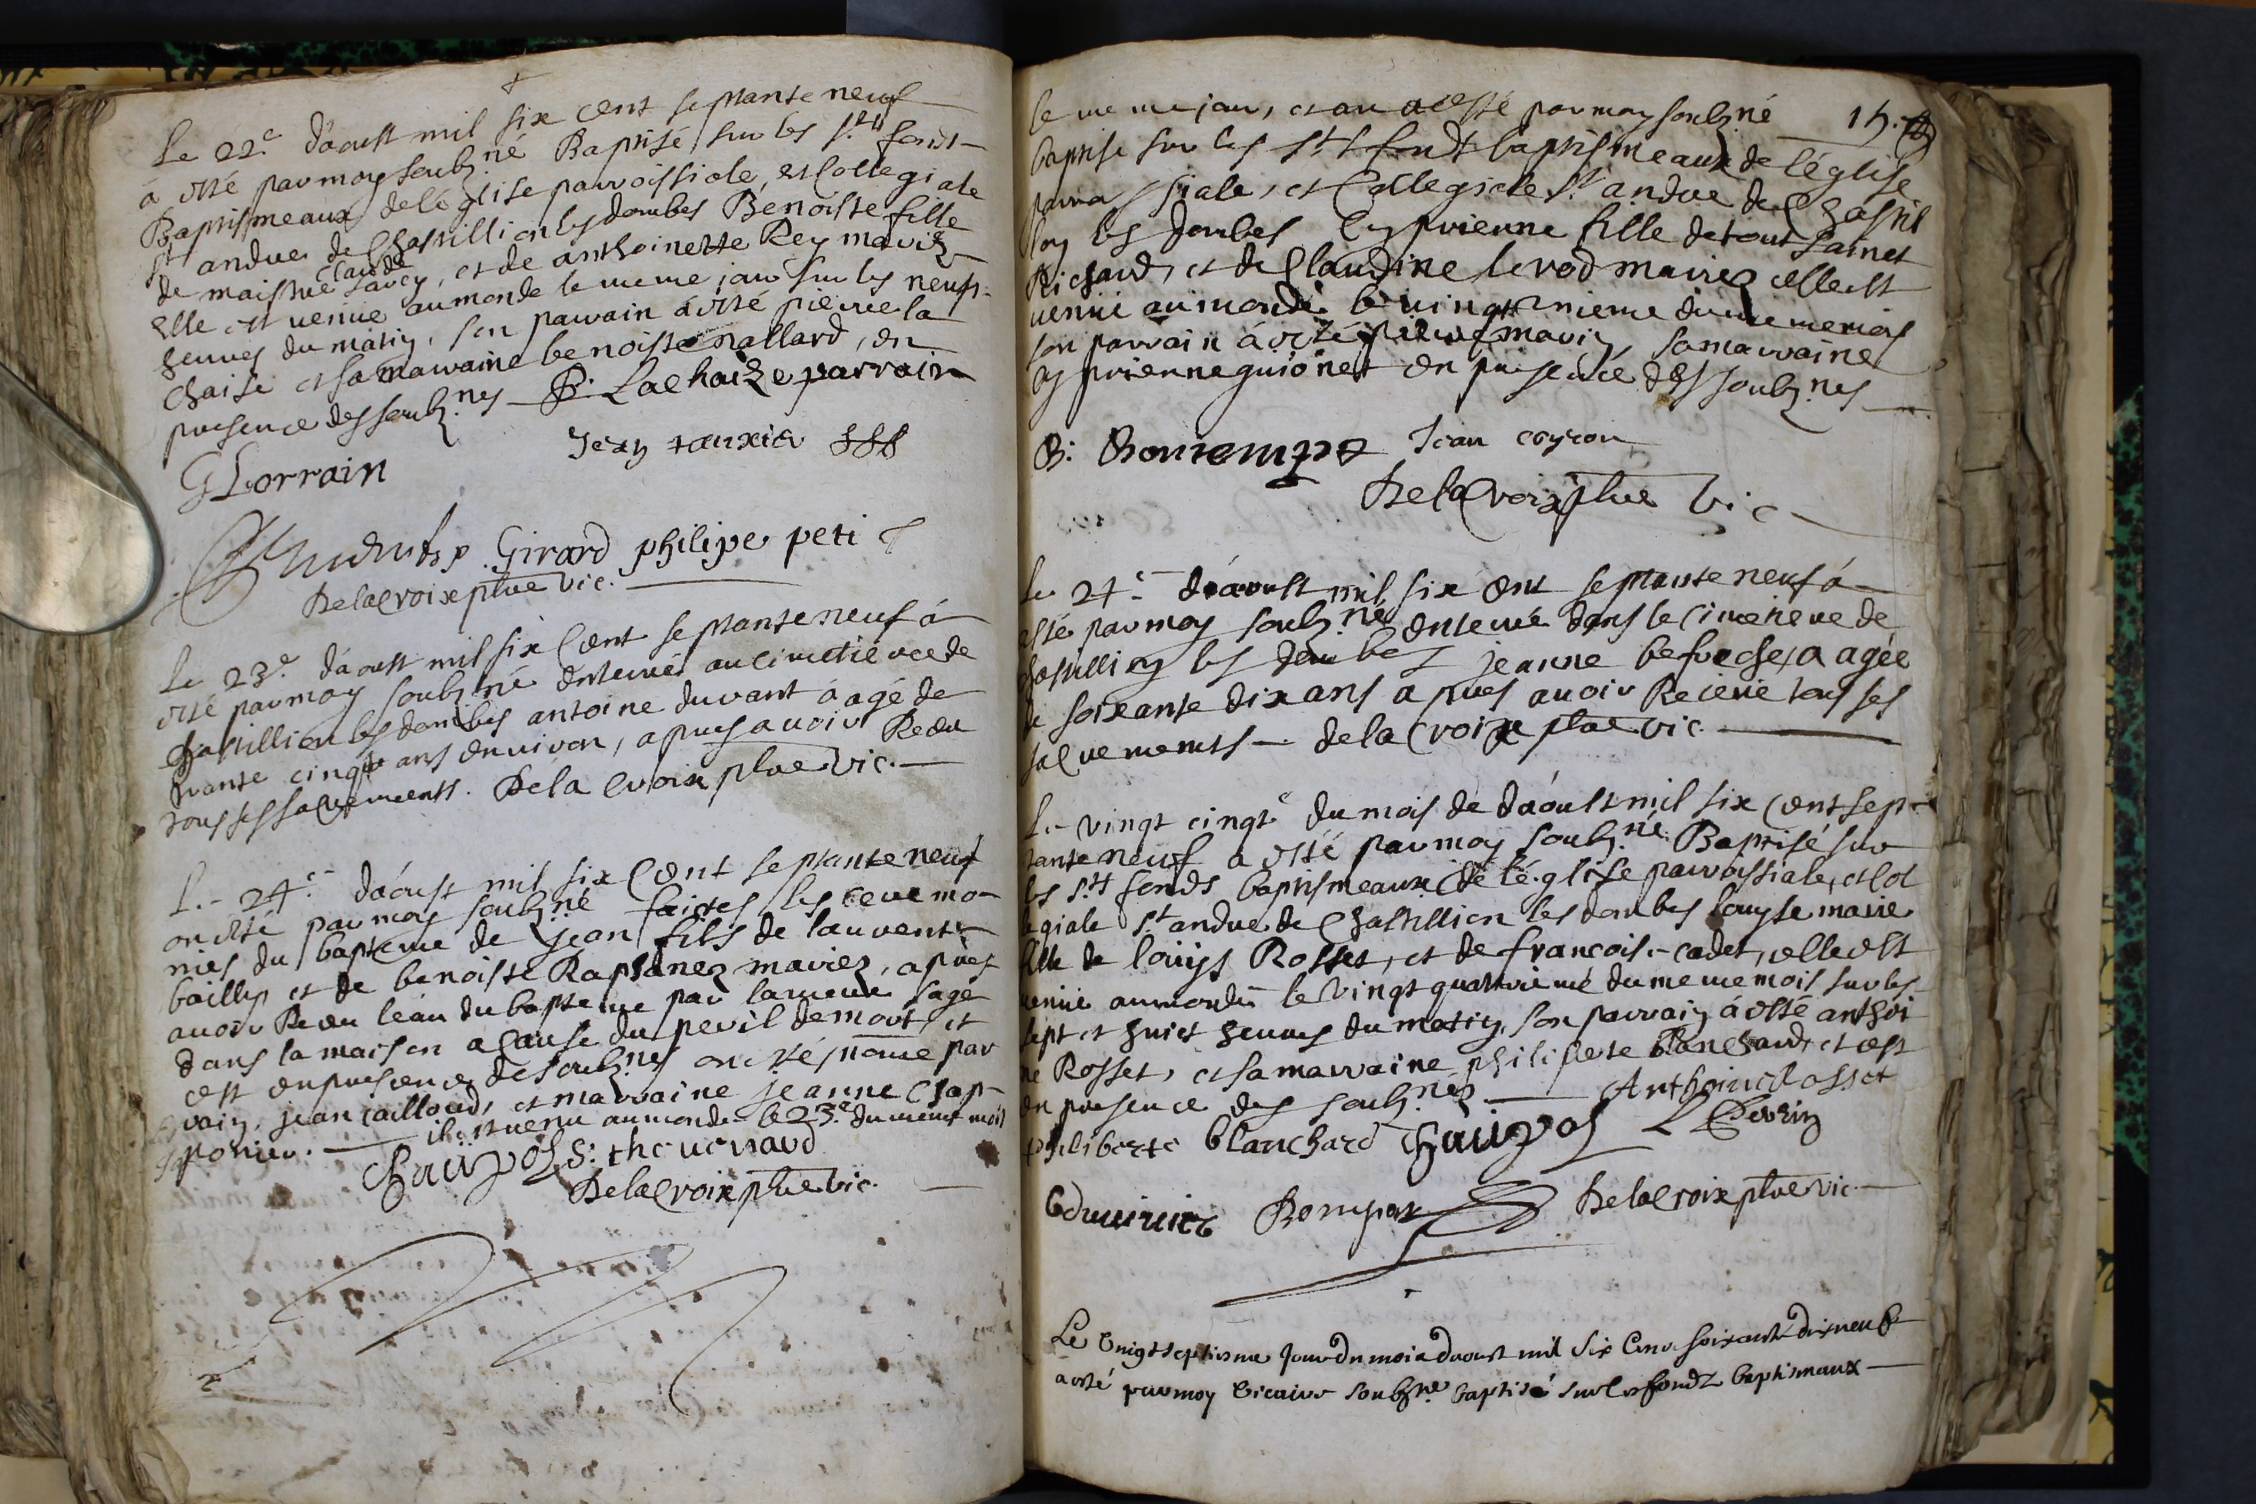 Le 22e d'aoust mil six cent septante neuf
à esté par moy soubz.né Baptisé sur les sts fonts
Baptismeaux de l'église parroissiale, et Collegiale
st andre de Chastillion les dombes Benoiste fille
de maistre Claude Savey, et de anthoinette Rey mariés
Elle est venue au monde le meme jour sur les neufs
heures du matin, son parrain à esté pierre la
Chaise et sa marraine benoiste nallard, en
presence des soubz.nes P. Lachaize parrain
Jean tauxier
G Lorrain
Girard philipe peti
Delacroix ptre vic.
Le 23e d'aoust mil six Cent septante neuf à
esté par moy soubz.né enterré au cimetiere de
Chastillion les dombes antoine durant àagé de
trante cinq ans environ, apres avoir Receu
tous ses sacrements. De la croix ptre vic.
Le 24e d'aoust mil six Cent septante neuf
on esté par moy soubz.né faictes les ceremo-
nies du bapteme de jean fils de laurent
bailly et de benoiste Raphanez mariez, apres
avoir Receu l'eau du bapteme par la mere sage
dans la maison a Cause du peril de mort, et
cest en presence de soubz.nes on été nome par
rain, jean cailloud, et marraine jeanne Chap-
ponier. il est venu au monde le 23e du meme mois
Chaipos S: thevenard
Delacroix ptre vic.
15.
le meme jour, et an à esté par moy soubz.né
baptisé sur les sts fonds baptismeaux de l'église
parroissiale, et Collegiale st andre de Chastil
lon les dombes Cyprienne fille de tout Sainct
Richard, et de Claudine levrod mariez elle est
venue au monde le vingt nieme du meme mois
son parrain à esté pierre marin, sa marraine
Cyprienne guionet en presence des soubz.nes
B: Bontemps Jean coyron
Delacroix ptre Vic
Le 24e d'aoust mil six Cent septante neuf à
esté par moy soubz.né enterré dans le cimetiere de
chastillion les dombes jeanne befreche, a agée
de soixante dix ans apres avoir Receue tous ses
sacrements de la Croix ptre vic.
Le vingt cinqe du mois de d'aoust mil six Cent sep-
tante neuf a esté par moy soubz.né Baptisé sur
les sts fonds baptismeaux de l'église parroissiale, et col
legiale st andre de Chastillion les dombes louyse marie
fille de louys Rosset, et de francoise cadet, elle est
venue au monde le Vingt quattrieme du meme mois sur les
sept et huict heures du matin, son parrain à esté anthoi
ne Rosset, et sa marraine philiberte blanchard, et cest
en presence des soubz.nes Anthoine Rosset
philiberte blanchard Chaipos L Perrin
Bompar Delacroix ptre vic.
Le Vingt septiesme Jour du mois daoust mil Six Cent soixante dix neuf
a esté par moy Vicaire soubz.ne baptisé sur les fondz baptismaux